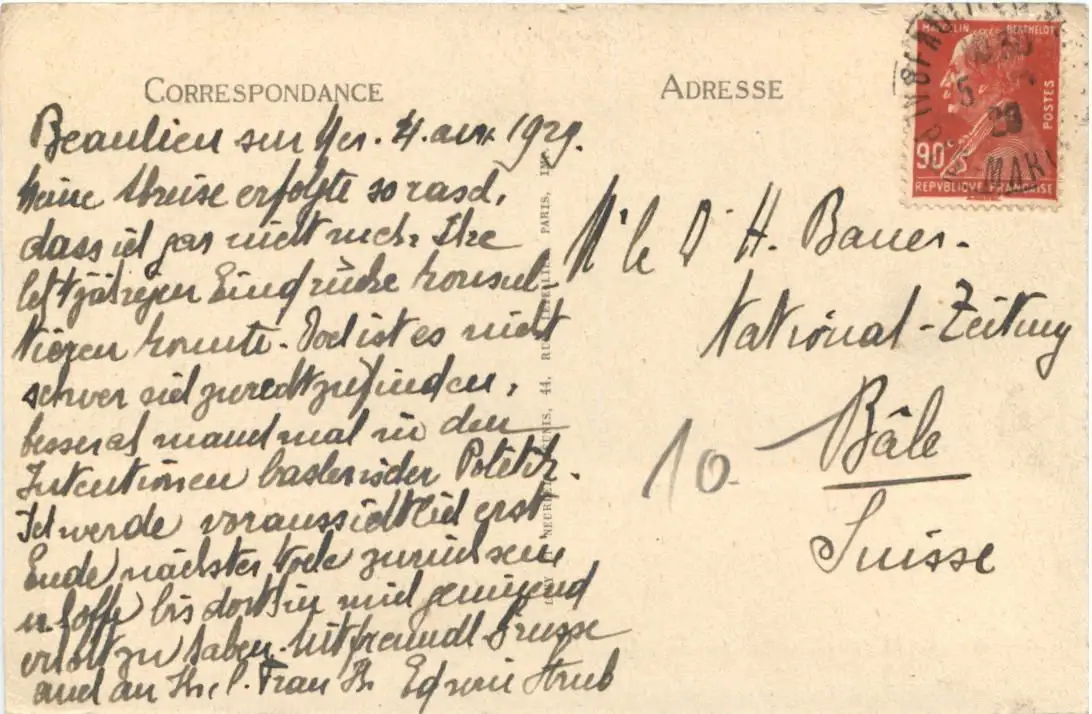 CORRESPONDANCE
Beaulieu sur Mer. 4. avr. 1929.
Meine Abreise erfolgte so rasch,
dass ich gar nicht mehr Ihre
letztjährigen Eindrücke konsul-
tieren konnte. Doch ist es nicht
schwer sich zurechtzufinden,
besser als manchmal in den
Intentionen baslerischer Politik.
Ich werde voraussichtlich erst
Ende nächster Woche zurück sein
u. hoffe bis dorthin mich genügend
erholt zu haben. Mit freundl. Grüsse
auch an Ihre l. Frau Ihr Edwin Strub
ADRESSE
Mr le Dr H. Bauer.
National-Zeitung
Bâle
Suisse
10.
BERTHELOT
POSTES
90c
REPVBLIQVE FRANÇAISE
5
29
MAR
44, RUE
PARIS,